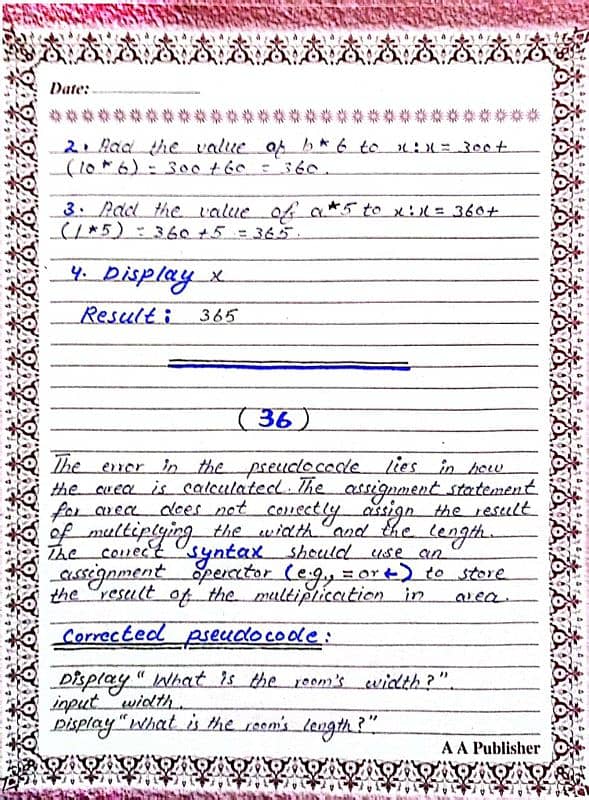 Date:
2. Add the value of b*6 to x:x= 300+
(10*6) = 300+60 = 360.
3. Add the value of a*5 to x:x= 360+
(1*5) = 360+5 = 365.
4. Display x
Result: 365
(36)
The error in the pseudocode lies in how
the area is calculated. The assignment statement
for area does not correctly assign the result
of multiplying the width and the length.
The correct syntax should use an
assignment operator (e.g., = or ←) to store
the result of the multiplication in area.
Corrected pseudocode:
Display "What is the room's width?".
input width.
Display "What is the room's length?"
A A Publisher